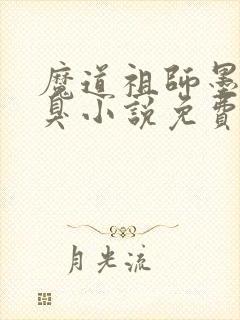 魔道祖師墨
臭小說免費
月光流